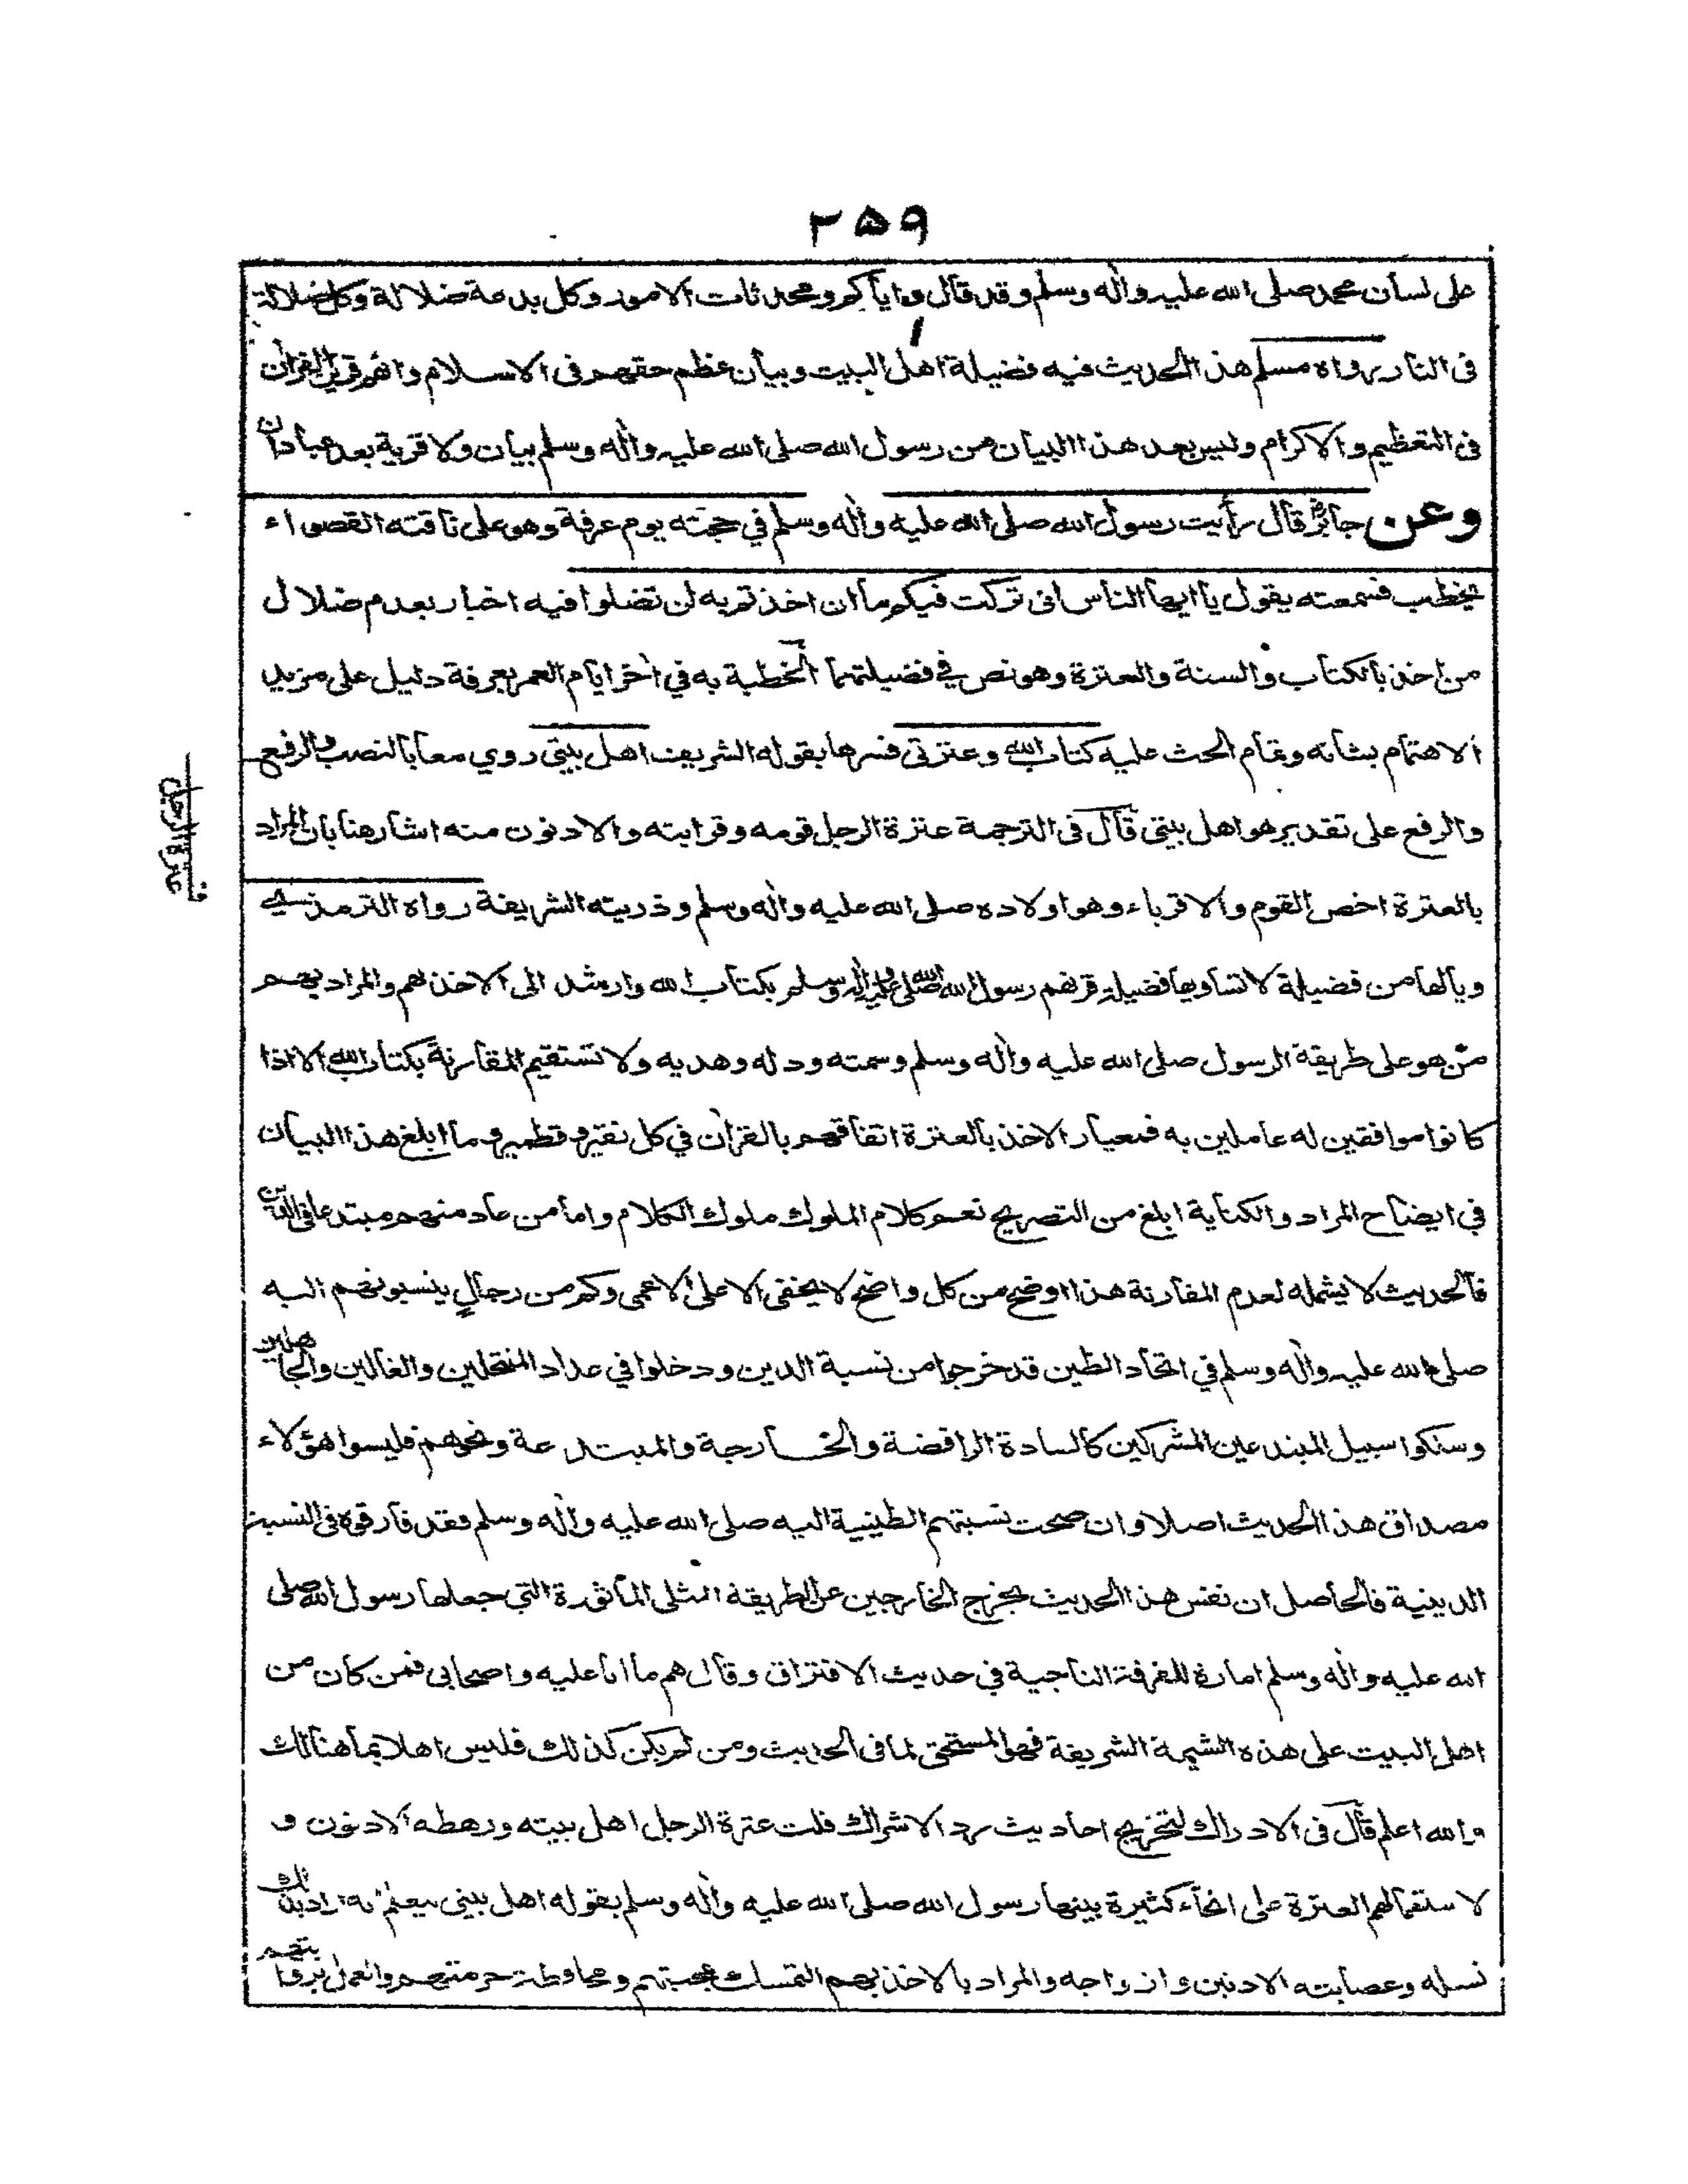 ۲۵۹
على لسان محمد صلى الله عليه واٰله وسلم وقد قال واياكم ومحدثات الامور وكل بدعة ضلالة وكل ضلالة
فى النار رواه مسلم هذا الحديث فيه فضيلة اهل البيت وبيان عظم حقهم فى الاسلام وانهم قرين القراٰن
فى التعظيم والاكرام وليس بعد هذا البيان من رسول الله صلى الله عليه واٰله وسلم بيان ولا قرية بعد عبادان
وعن جابرؓ قال رأيت رسول الله صلى الله عليه واٰله وسلم في حجته يوم عرفة وهو على ناقته القصواء
يخطب فسمعته يقول يا ايها الناس انى تركت فيكم ما ان اخذتم به لن تضلوا فيه اخبار بعدم ضلال
من اخذ بالكتاب والسنة والعترة وهو نص في فضيلتهما الخطبة به في اٰخر ايام العمر بعرفة دليل على مزيد
الاهتمام بشانه وتمام الحث عليه كتاب الله وعترتى فسرها بقوله الشريف اهل بيتي روي معا بالنصب والرفع
والرفع على تقدير هو اهل بيتي قال فى الترجمة عترة الرجل قومه وقرابته والادنون منه اشار هنا بان المراد
بالعترة اخص القوم والاقرباء وهو اولاده صلى الله عليه واٰله وسلم وذريته الشريفة رواه الترمذي
ويالها من فضيلة لا تساويها فضيلة قرنهم رسول الله صلى الله عليه واٰله وسلم بكتاب الله وارشد الى الاخذ بهم والمراد بهم
من هو على طريقة الرسول صلى الله عليه واٰله وسلم وسمته ودله وهديه ولا تستقيم المقارنة بكتاب الله الا اذا
كانوا موافقين له عاملين به فمعيار الاخذ بالعترة اتفاقهم بالقراٰن في كل نقير وقطمير وما ابلغ هذا البيان
في ايضاح المراد والكناية ابلغ من التصريح نعم كلام الملوك ملوك الكلام واما من عاد منهم مبتدعا فى الدين
فالحديث لا يشمله لعدم المقارنة هذا اوضح من كل واضح لا يخفى الا على الاعمى وكم من رجال ينسبونهم اليه
صلى الله عليه واٰله وسلم في اتحاد الطين قد خرجوا من نسبة الدين ودخلوا في عداد المنتحلين والغالين والجاهلين
وسلكوا سبيل المبتدعين المشركين كالسادة الرافضة والخارجة والمبتدعة ونحوهم فليسوا هؤلاء
مصداق هذا الحديث اصلا وان صحت نسبتهم الطينية اليه صلى الله عليه واٰله وسلم فقد فارقوه فى النسبة
الدينية فالحاصل ان نفس هذا الحديث يخرج الخارجين عن الطريقة المثلى الماثورة التي جعلها رسول الله صلى
الله عليه واٰله وسلم امارة للفرقة الناجية في حديث الافتراق وقال هم ما انا عليه واصحابي فمن كان من
اهل البيت على هذه الشيمة الشريفة فهو المستحق لما فى الحديث ومن لم يكن كذلك فليس اهلا بما هنالك
والله اعلم قال فى الادراك لتخريج احاديث رد الاشراك قلت عترة الرجل اهل بيته ورهطه الادنون و
لاستعمالهم العترة على انحاء كثيرة بينها رسول الله صلى الله عليه واٰله وسلم بقوله اهل بيتي ليعلم انه اراد بذلك
نسله وعصابته الادنين وازواجه والمراد بالاخذ بهم التمسك بمحبتهم ومحافظة حرمتهم والعمل بروايتهم
عترة الرجل